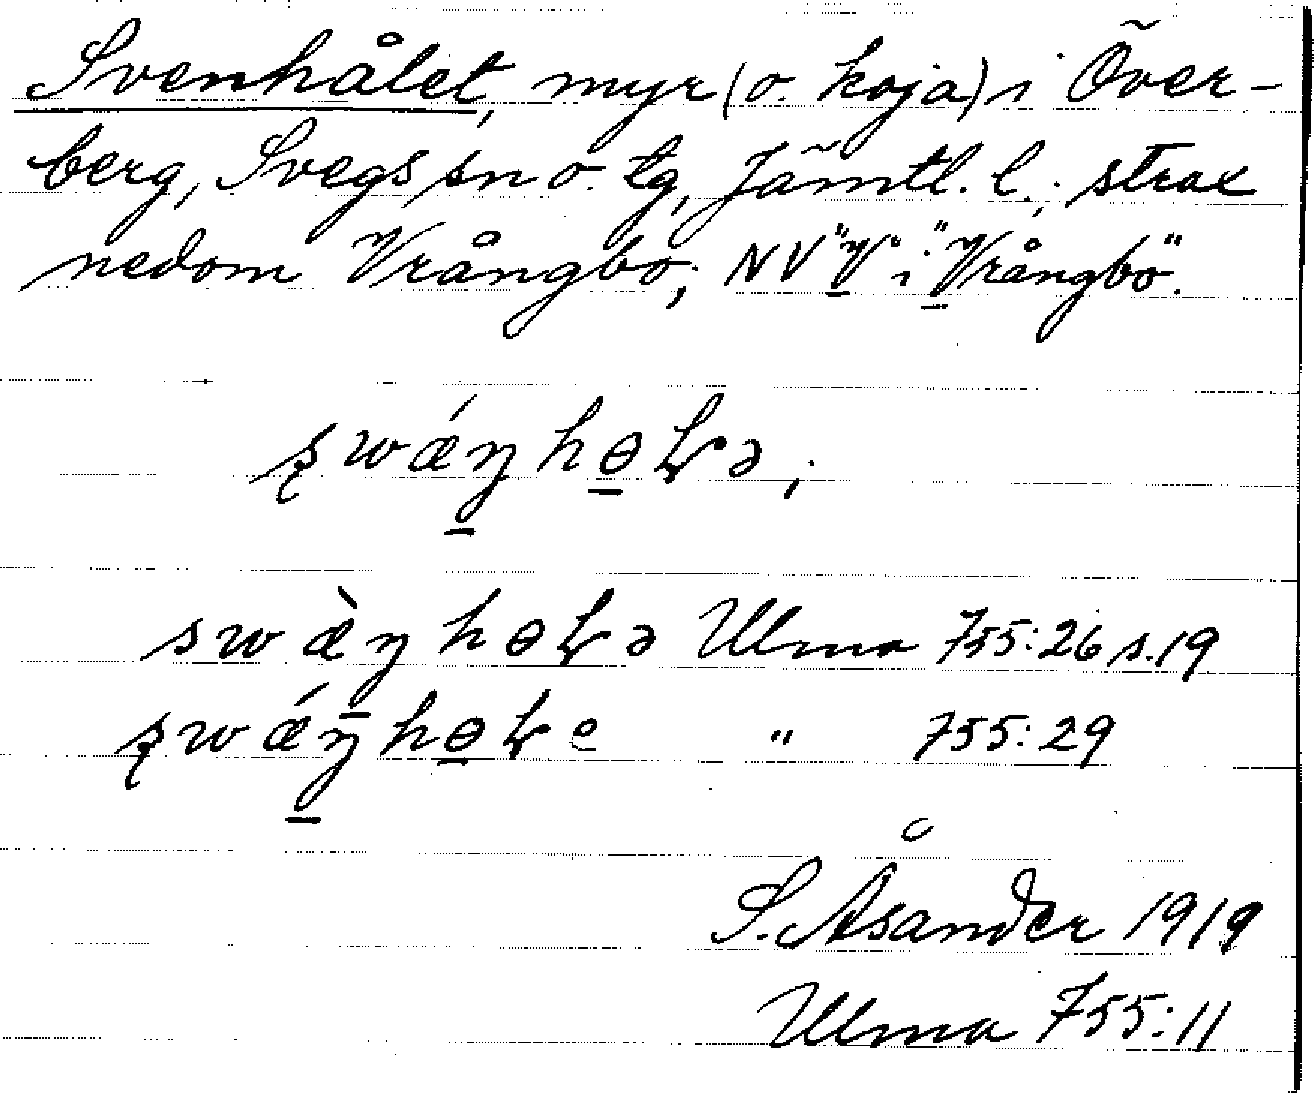 Svenhålet, myr (o. koja) i Över-
berg, Svegs sn o. tg, Jämtl. l.; strax
nedom Vrångbo; NV "V" i "Vrångbö".
Ulma 755:26 s.19
" 755:29
S. Åsander 1919
Ulma 755:11